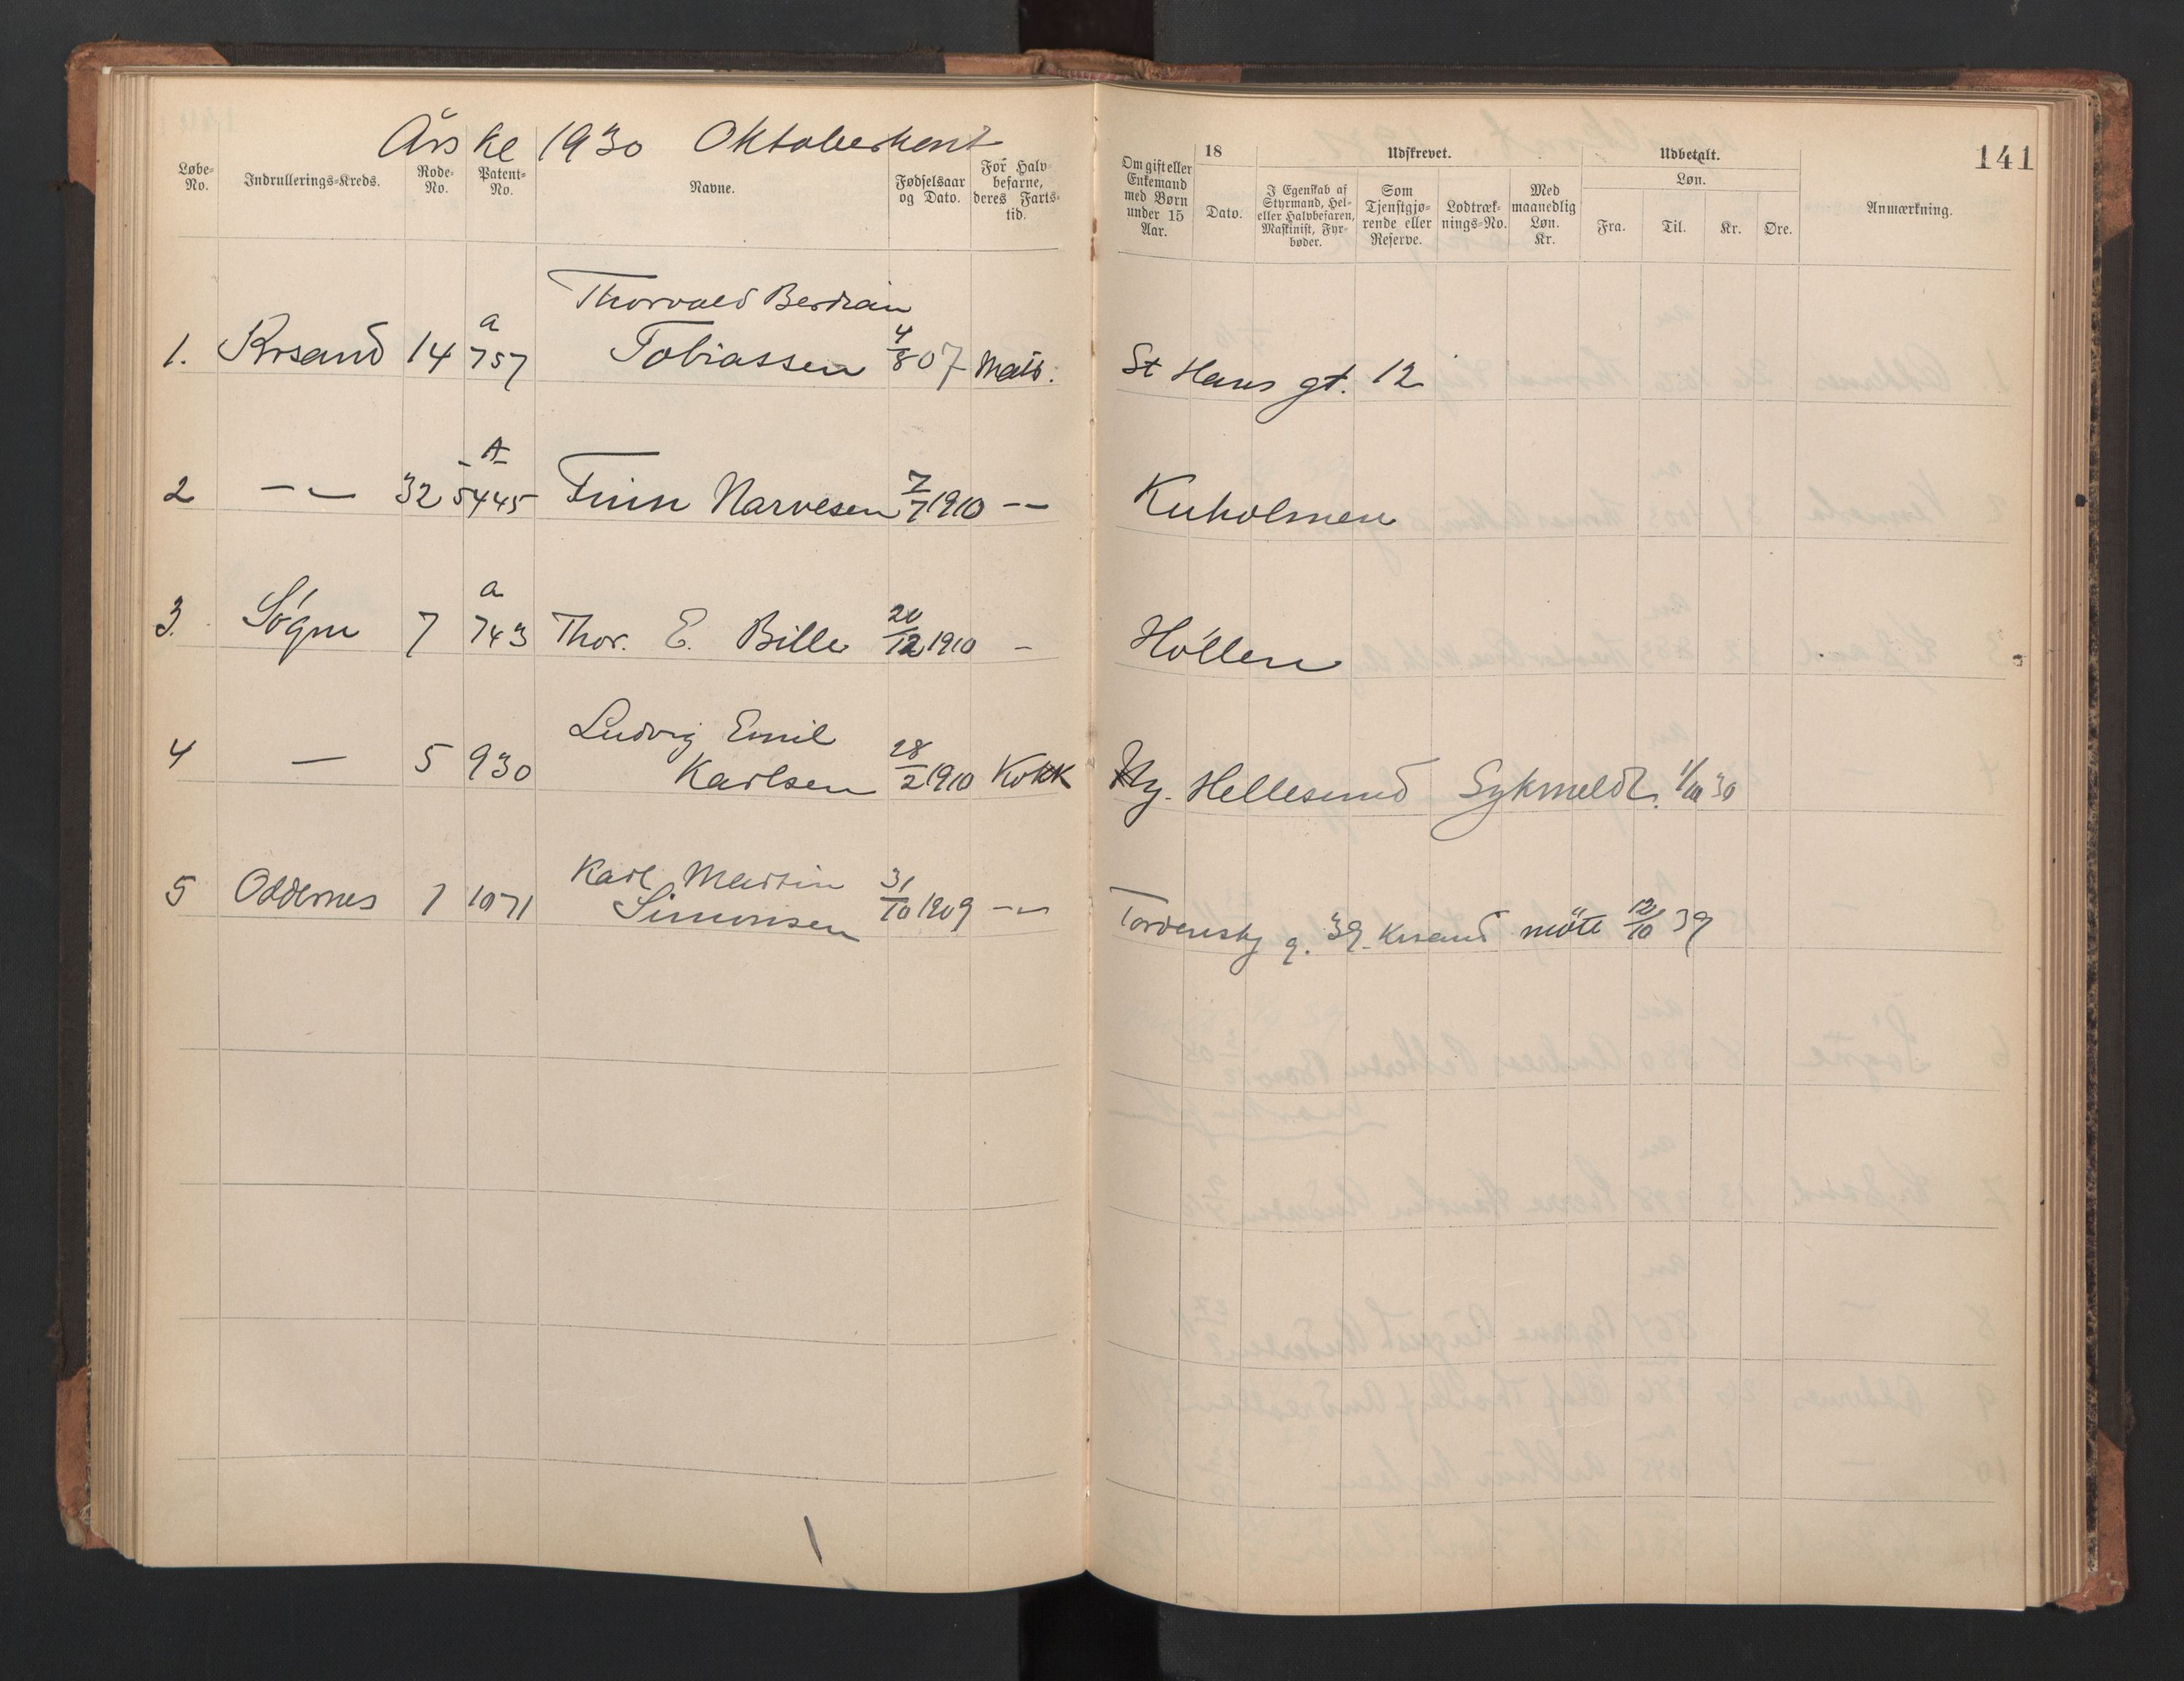 Års kl 1930 Oktoberkent
141
Løbe-No.
Indrullerings-Kreds.
Rode-No.
Patent-No.
Navne.
Fødselsaar og Dato.
For Halvbefarne, deres Fartstid.
Om gift eller Enkemand med Børn under 15 Aar.
18
Dato.
Udskrevet.
I Egenskab af Styrmand, Hel- eller Halvbefaren, Maskinist, Fyrbøder.
Som Tjenstgjørende eller Reserve.
Lodtræknings-No.
Med maanedlig Løn. Kr.
Udbetalt.
Løn.
Fra.
Til.
Kr.
Øre.
Anmærkning.
Thorvald
1. Krsand 14 a 757 Tobiassen 4/8 07 Matr. St Hans gt. 12
2 -"- 32 A 5445 Finn Narvesen 7/7 1910 -"- Kuholmen
3. Søgne 7 a 743 Thor. E. Bille 20/12 1910 - Höllen
Ludvig Emil
4 - 5 930 Karlsen 28/2 1910 Kokk Ny. Hellesund Sykmeldt.
Karl Martin
5 Oddernes 1 1071 Simonsen 31/10 1909 -"- Tordenskj g. 39. Krsand möte 12/10 39